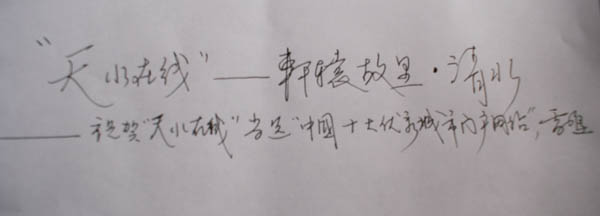 “天水在线”——軒辕故里·清水
——祝贺“天水在线”当选“中國十大优秀城市门户网站”，雷